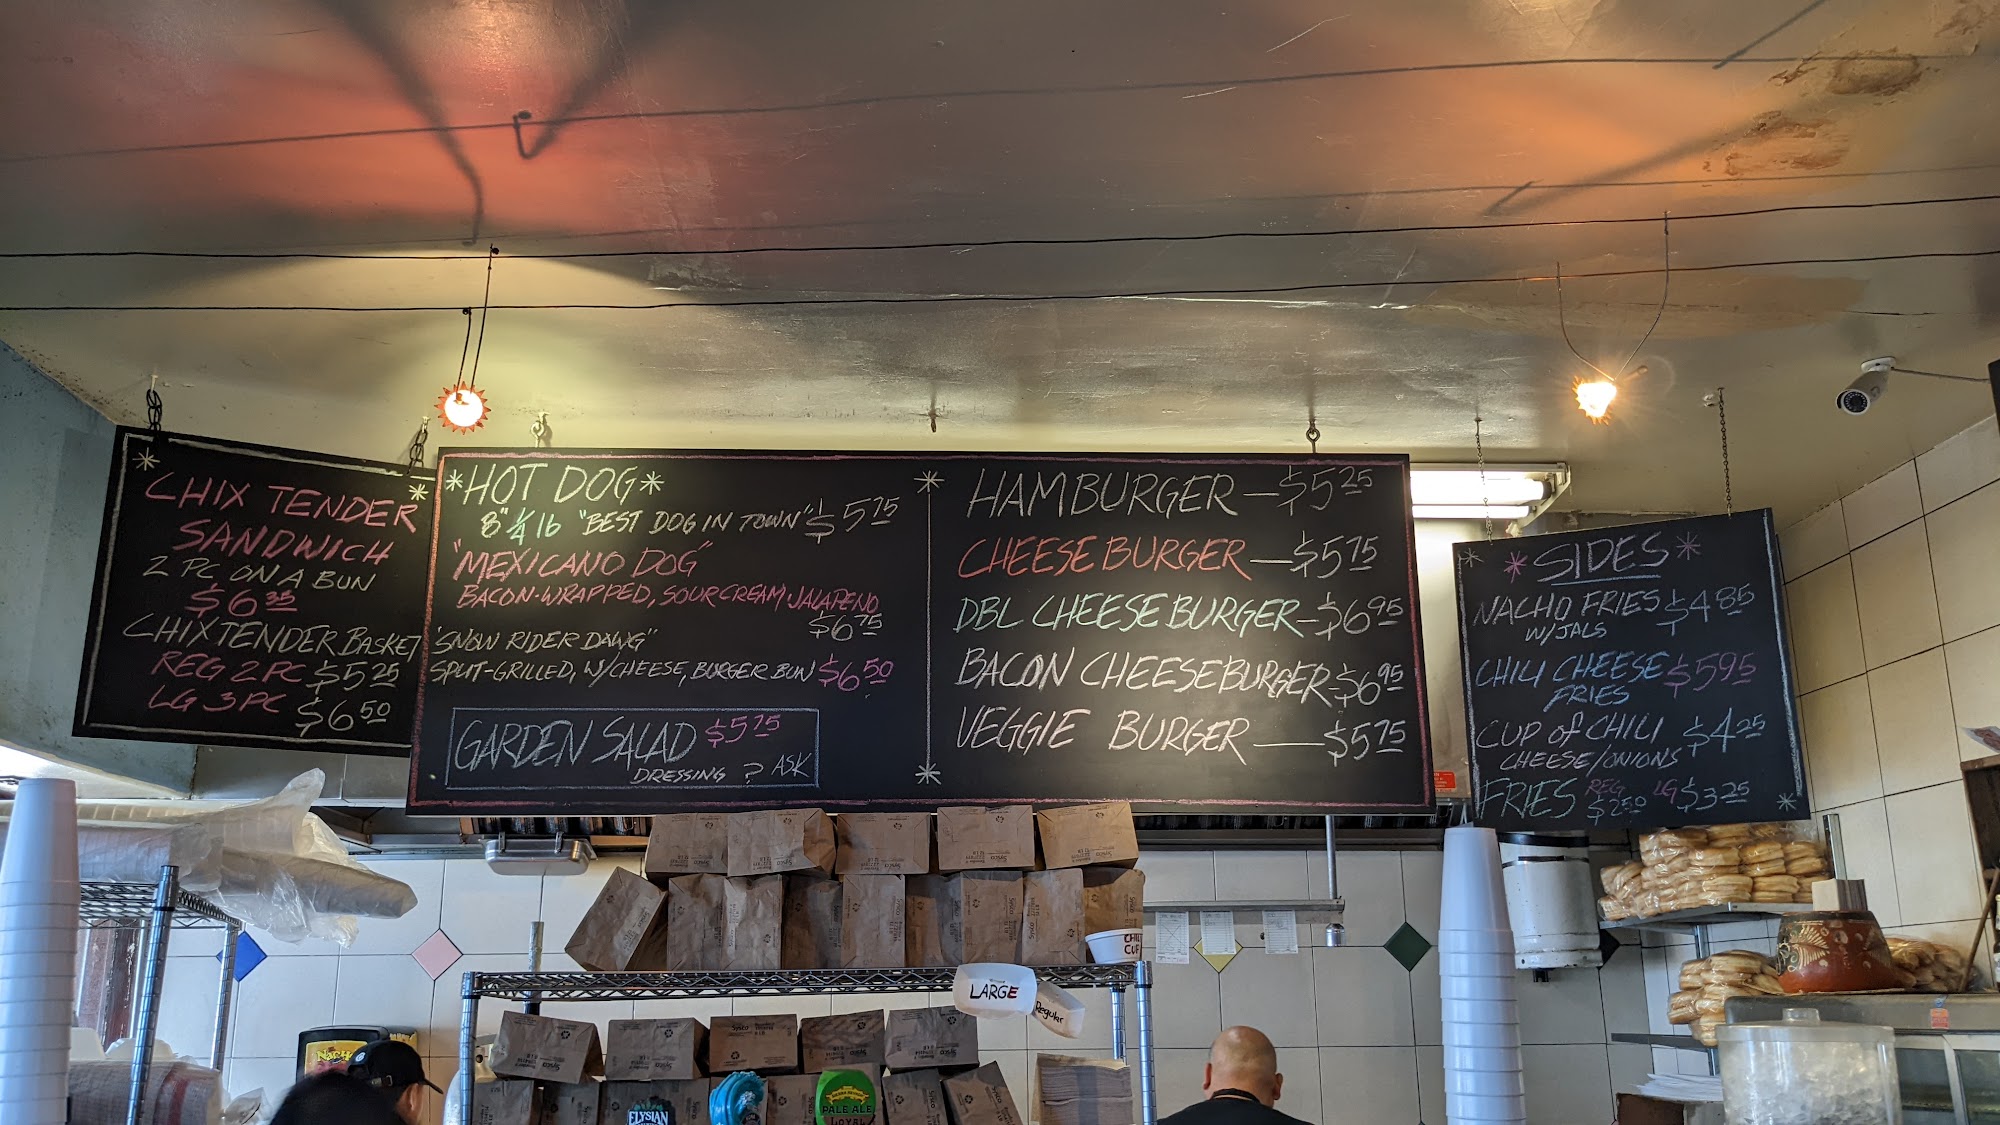 CHIX TENDER
SANDWICH
2 PC ON A BUN
$6 35
CHIX TENDER BASKET
REG 2 PC $5 25
LG 3 PC $6 50
*HOT DOG*
8" 1/4 lb "BEST DOG IN TOWN" $5 75
"MEXICANO DOG"
BACON-WRAPPED, SOUR CREAM·JALAPENO
$6 75
"SNOW RIDER DAWG"
SPLIT-GRILLED, W/CHEESE, BURGER BUN $6 50
GARDEN SALAD $5 75
DRESSING ? ASK
HAMBURGER — $5 25
CHEESE BURGER — $5 75
DBL CHEESE BURGER — $6 95
BACON CHEESEBURGER — $6 95
VEGGIE BURGER — $5 75
* SIDES *
NACHO FRIES $4 85
W/JALS
CHILI CHEESE $5 95
FRIES
CUP of CHILI $4 25
CHEESE/ONIONS
FRIES REG $2 50 LG $3 25
CHILI
CUP
LARGE
Regular
NACHO
ELYSIAN
PALE ALE
Sysco